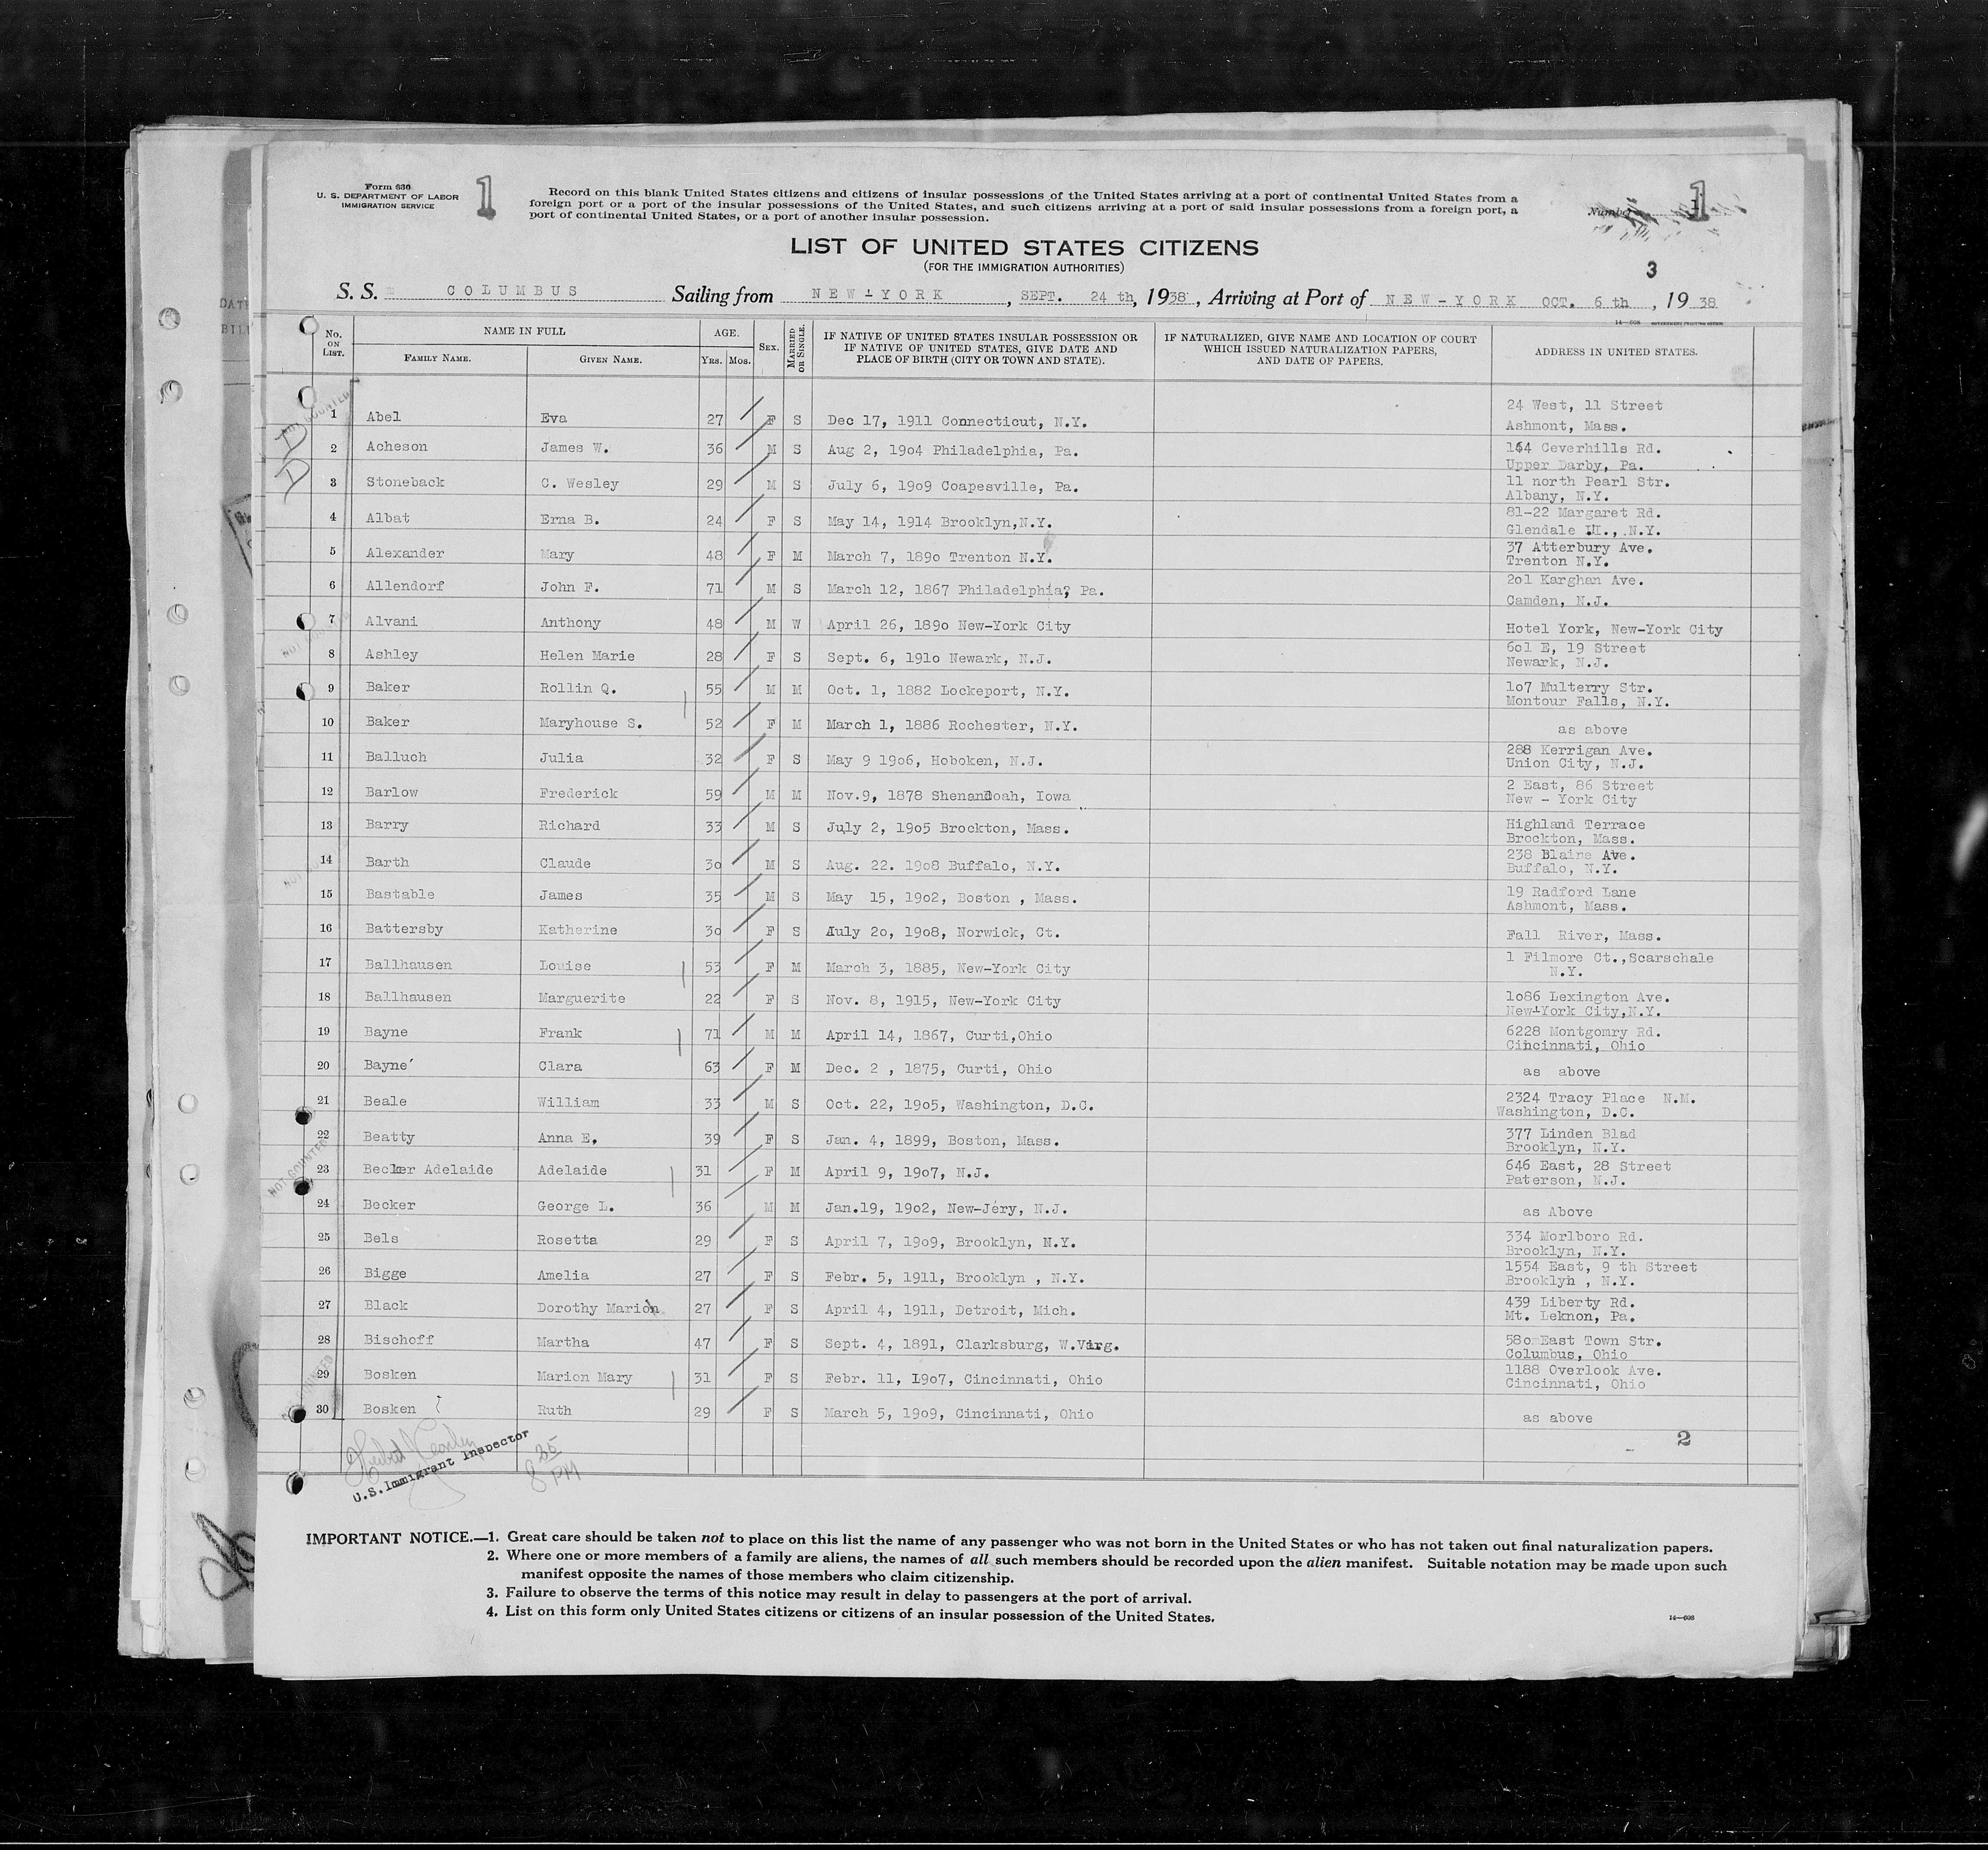 Form 630
U. S. DEPARTMENT OF LABOR
IMMIGRATION SERVICE
1
Record on this blank United States citizens and citizens of insular possessions of the United States arriving at a port of continental United States from a
foreign port or a port of the insular possessions of the United States, and such citizens arriving at a port of said insular possessions from a foreign port, a
port of continental United States, or a port of another insular possession.
Number 1
LIST OF UNITED STATES CITIZENS
(FOR THE IMMIGRATION AUTHORITIES)
3
S. S. COLUMBUS Sailing from NEW-YORK, SEPT. 24 th, 1938, Arriving at Port of NEW-YORK OCT. 6 th, 19 38
14—608 GOVERNMENT PRINTING OFFICE
No. ON LIST. NAME IN FULL FAMILY NAME. GIVEN NAME. AGE. YRS. MOS. SEX. MARRIED OR SINGLE. IF NATIVE OF UNITED STATES INSULAR POSSESSION OR IF NATIVE OF UNITED STATES, GIVE DATE AND PLACE OF BIRTH (CITY OR TOWN AND STATE). IF NATURALIZED, GIVE NAME AND LOCATION OF COURT WHICH ISSUED NATURALIZATION PAPERS, AND DATE OF PAPERS. ADDRESS IN UNITED STATES.
1 Abel Eva 27 F S Dec 17, 1911 Connecticut, N.Y. 24 West, 11 Street
Ashmont, Mass.
2 Acheson James W. 36 M S Aug 2, 19o4 Philadelphia, Pa. 164 Ceverhills Rd.
Upper Darby, Pa.
3 Stoneback C. Wesley 29 M S July 6, 19o9 Coapesville, Pa. 11 north Pearl Str.
Albany, N.Y.
4 Albat Erna B. 24 F S May 14, 1914 Brooklyn,N.Y. 81-22 Margaret Rd.
Glendale , N.Y.
5 Alexander Mary 48 F M March 7, 189o Trenton N.Y. 37 Atterbury Ave.
Trenton N.Y.
6 Allendorf John F. 71 M S March 12, 1867 Philadelphia, Pa. 2o1 Karghan Ave.
Camden, N.J.
7 Alvani Anthony 48 M W April 26, 189o New-York City Hotel York, New-York City
8 Ashley Helen Marie 28 F S Sept. 6, 191o Newark, N.J. 6o1 E, 19 Street
Newark, N.J.
9 Baker Rollin Q. 55 M M Oct. 1, 1882 Lockeport, N.Y. 1o7 Multerry Str.
Montour Falls, N.Y.
10 Baker Maryhouse S. 52 F M March 1, 1886 Rochester, N.Y. as above
11 Balluch Julia 32 F S May 9 19o6, Hoboken, N.J. 288 Kerrigan Ave.
Union City, N.J.
12 Barlow Frederick 59 M M Nov.9, 1878 Shenandoah, Iowa 2 East, 86 Street
New - York City
13 Barry Richard 33 M S July 2, 19o5 Brockton, Mass. Highland Terrace
Brockton, Mass.
14 Barth Claude 3o M S Aug. 22. 19o8 Buffalo, N.Y. 238 Blaine Ave.
Buffalo, N.Y.
15 Bastable James 35 M S May 15, 19o2, Boston , Mass. 19 Radford Lane
Ashmont, Mass.
16 Battersby Katherine 3o F S July 2o, 19o8, Norwick, Ct. Fall River, Mass.
17 Ballhausen Louise 53 F M March 3, 1885, New-York City 1 Filmore Ct.,Scarschale
N.Y.
18 Ballhausen Marguerite 22 F S Nov. 8, 1915, New-York City 1o86 Lexington Ave.
New-York City,N.Y.
19 Bayne Frank 71 M M April 14, 1867, Curti,Ohio 6228 Montgomry Rd.
Cincinnati, Ohio
20 Bayne Clara 63 F M Dec. 2 , 1875, Curti, Ohio as above
21 Beale William 33 M S Oct. 22, 19o5, Washington, D.C. 2324 Tracy Place N.M.
Washington, D.C.
22 Beatty Anna E. 39 F S Jan. 4, 1899, Boston, Mass. 377 Linden Blad
Brooklyn, N.Y.
23 Becker Adelaide Adelaide 31 F M April 9, 19o7, N.J. 646 East, 28 Street
Paterson, N.J.
24 Becker George L. 36 M M Jan.19, 19o2, New-Jéry, N.J. as Above
25 Bels Rosetta 29 F S April 7, 19o9, Brooklyn, N.Y. 334 Morlboro Rd.
Brooklyn, N.Y.
26 Bigge Amelia 27 F S Febr. 5, 1911, Brooklyn , N.Y. 1554 East, 9 th Street
Brooklyn , N.Y.
27 Black Dorothy Marion 27 F S April 4, 1911, Detroit, Mich. 439 Liberty Rd.
Mt. Leknon, Pa.
28 Bischoff Martha 47 F S Sept. 4, 1891, Clarksburg, W.Virg. 58o East Town Str.
Columbus, Ohio
29 Bosken Marion Mary 31 F S Febr. 11, 19o7, Cincinnati, Ohio 1188 Overlook Ave.
Cincinnati, Ohio
30 Bosken Ruth 29 F S March 5, 19o9, Cincinnati, Ohio as above
2
U.S. Immigrant Inspector
8 25 PM
IMPORTANT NOTICE.—1. Great care should be taken not to place on this list the name of any passenger who was not born in the United States or who has not taken out final naturalization papers.
2. Where one or more members of a family are aliens, the names of all such members should be recorded upon the alien manifest. Suitable notation may be made upon such
manifest opposite the names of those members who claim citizenship.
3. Failure to observe the terms of this notice may result in delay to passengers at the port of arrival.
4. List on this form only United States citizens or citizens of an insular possession of the United States.
14—608